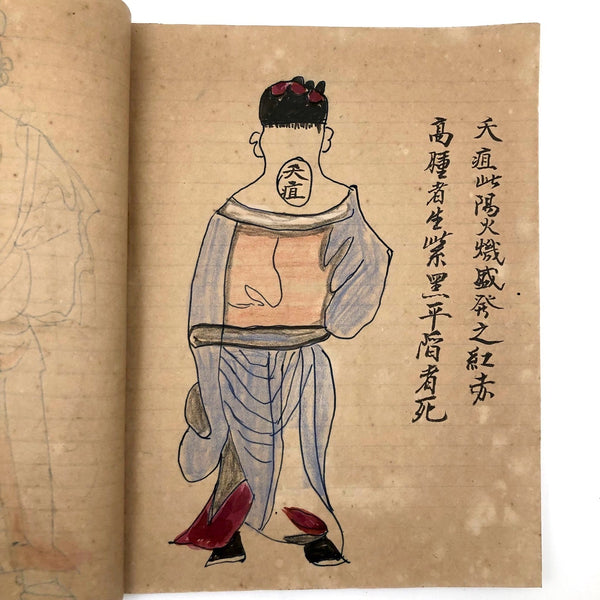 夭疽此陽火熾盛發之紅赤
高腫者生紫黑平陷者死
夭疽